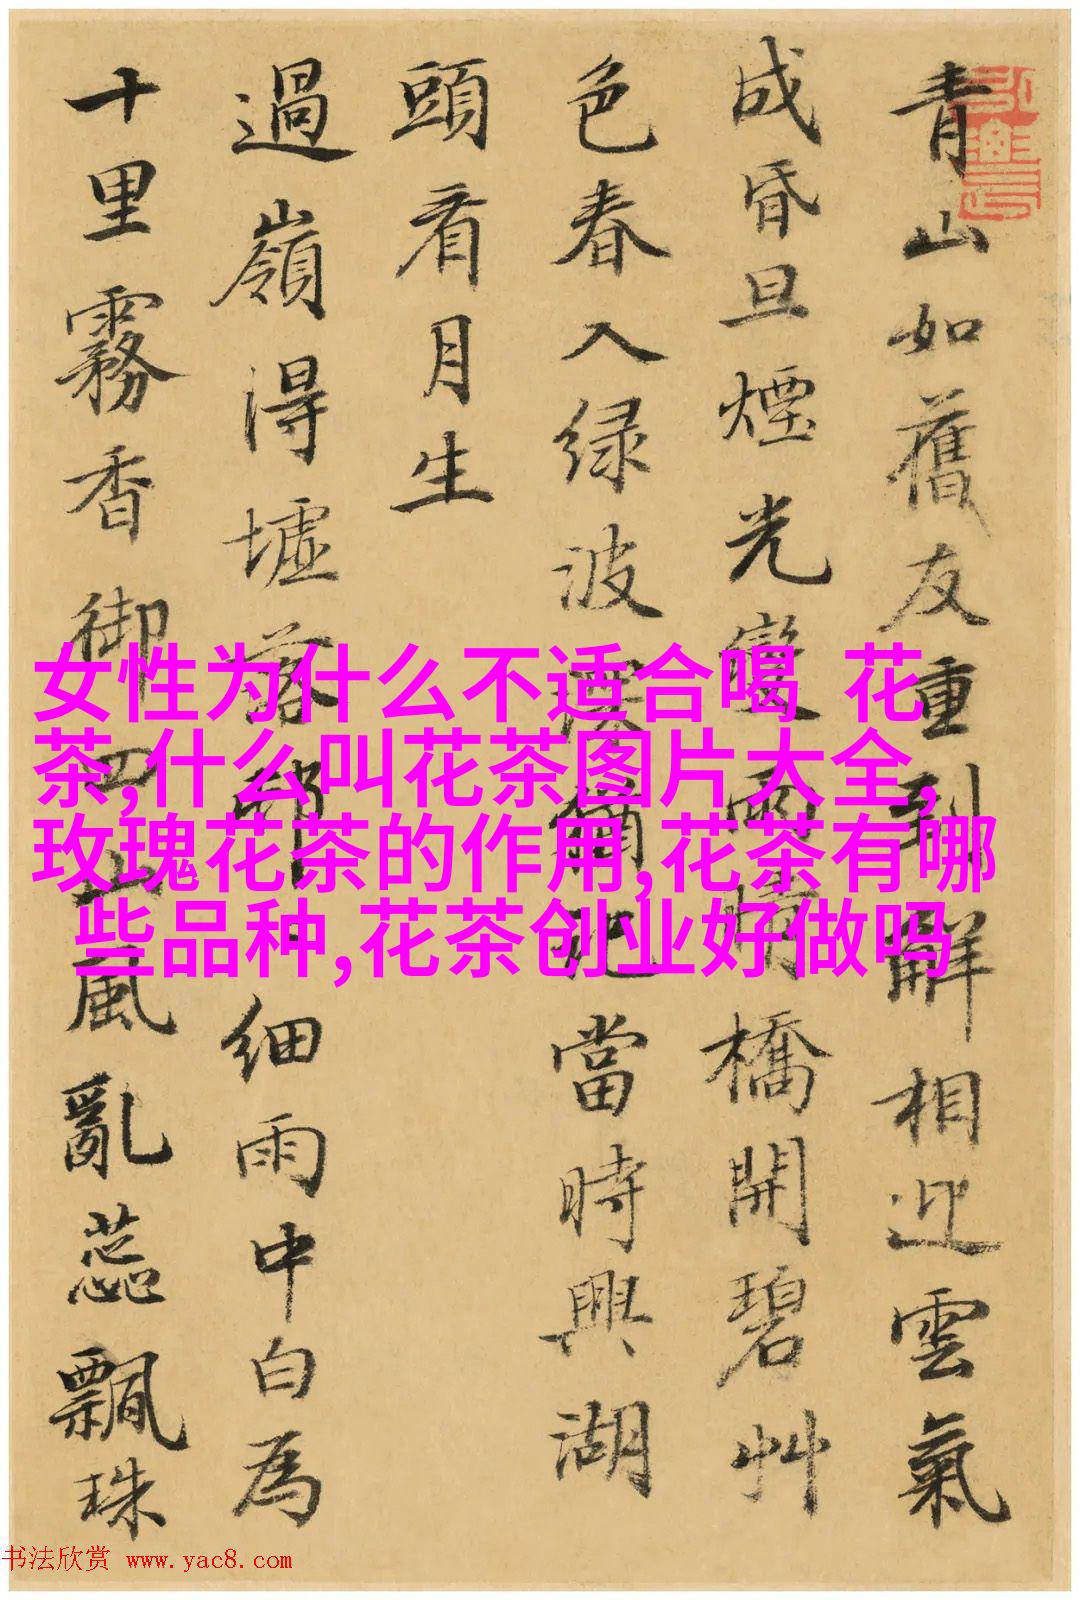 青山如舊友重到解相迎雲氣
成昏旦煙光變雨晴橋開碧艸
色春入绿波當時興湖
頭看月生
過嶺得墟落邨細雨中白為
十里霧香御四山風亂蕊飄珠
女性为什么不适合喝 花
茶,什么叫花茶图片大全,
玫瑰花茶的作用,花茶有哪
些品种,花茶创业好做吗
书法欣赏 www.yac8.com